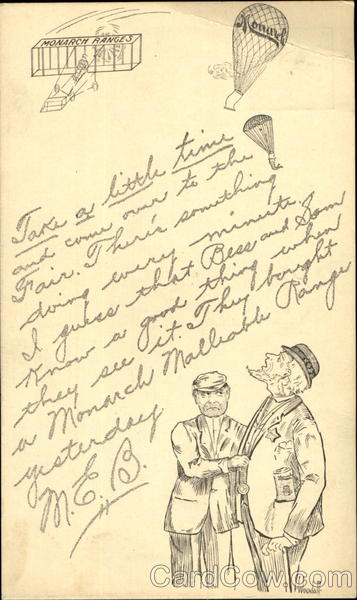 MONARCH RANGES
Monarch
Take a little time
and come over to the
Fair. There's something
doing every minute.
I guess that Bess and Sam
Know a good thing when
they see it. They bought
a Monarch Malleable Range
yesterday
M.E.B.
Woodall
CardCow.com